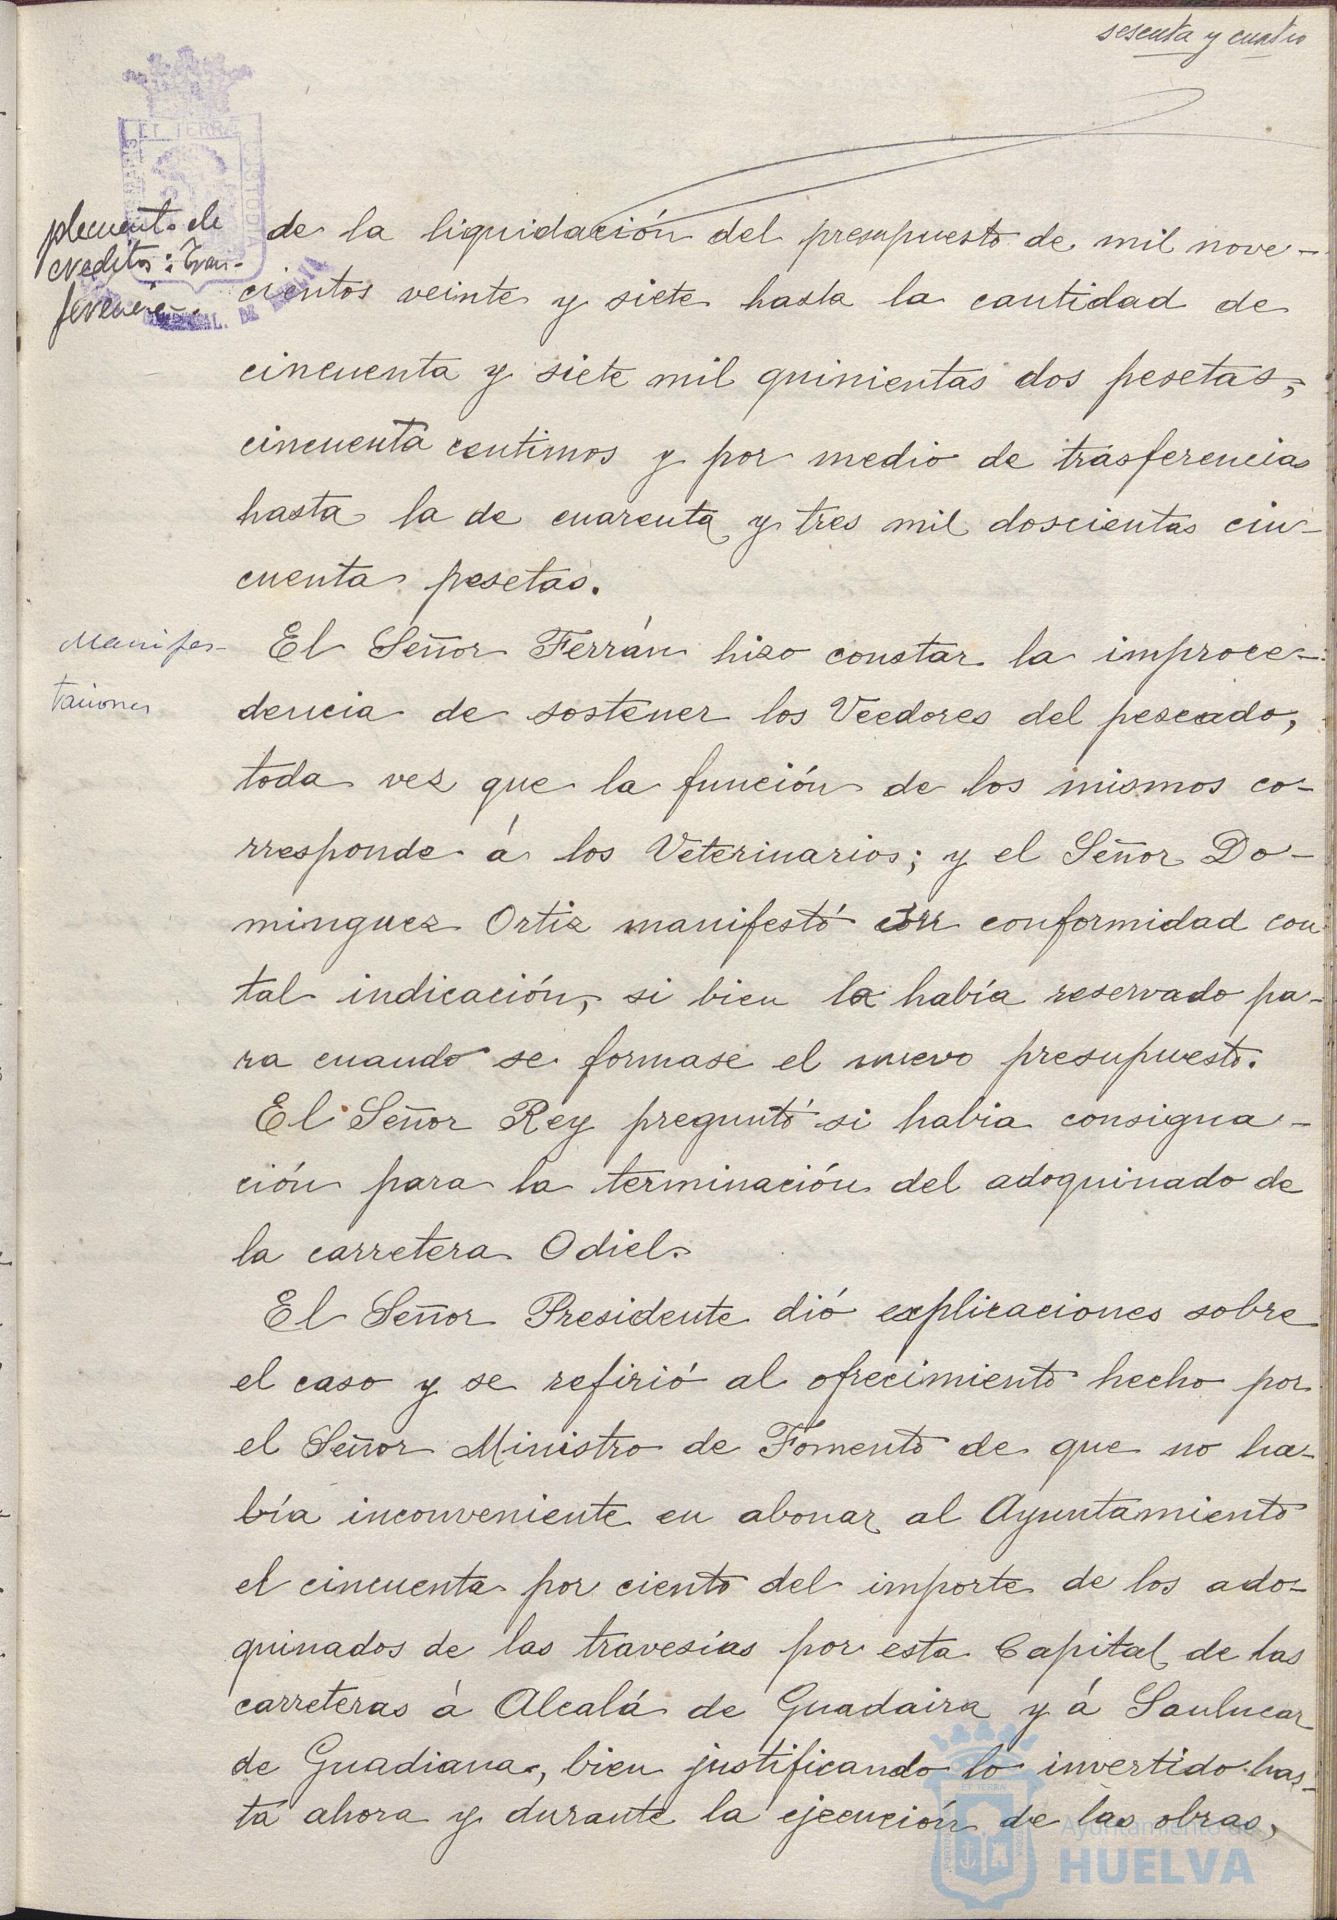 sesenta y cuatro
plemento de
creditos: Tras-
ferencia.
de la liquidación del presupuesto de mil nove-
cientos veinte y siete hasta la cantidad de
cincuenta y siete mil quinientas dos pesetas,
cincuenta centimos y por medio de trasferencias
hasta la de cuarenta y tres mil doscientas cin-
cuenta pesetas.
Manifes-
taciones
El Señor Ferrán hizo constar la improce-
dencia de sostener los Veedores del pescado,
toda vez que la función de los mismos co-
rresponde á los Veterinarios; y el Señor Do-
minguez Ortiz manifestó conformidad con
tal indicación, si bien la había reservado pa-
ra cuando se formase el nuevo presupuesto.
El Señor Rey preguntó si habia consigna-
ción para la terminación del adoquinado de
la carretera Odiel.
El Señor Presidente dió explicaciones sobre
el caso y se refirió al ofrecimiento hecho por
el Señor Ministro de Fomento de que no ha-
bía inconveniente en abonar al Ayuntamiento
el cincuenta por ciento del importe de los ado-
quinados de las travesías por esta Capital de las
carreteras á Alcalá de Guadaira y á Sanlucar
de Guadiana, bien justificando lo invertido has-
ta ahora y durante la ejecución de las obras,
Ayuntamiento de
HUELVA